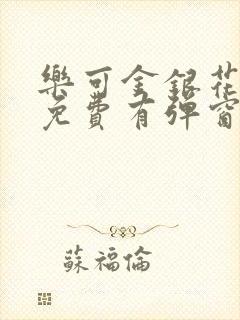 樂可金銀花
免費有彈窗
蘇福倫